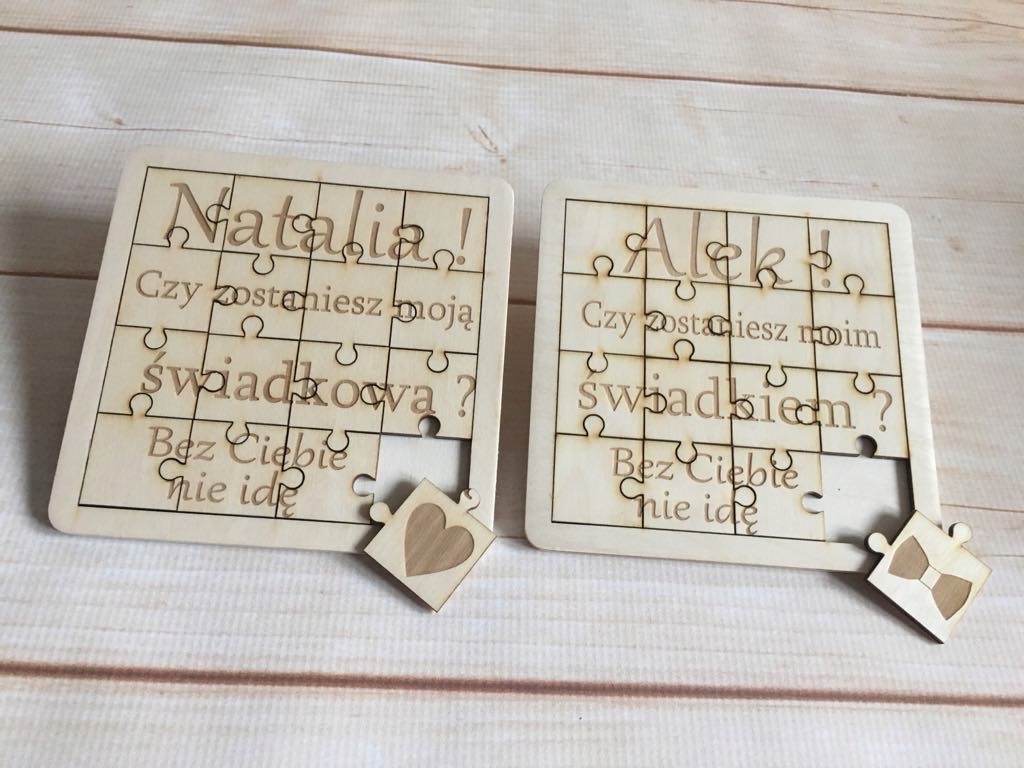 Natalia !
Czy zostaniesz moją
świadkową ?
Bez Ciebie
nie idę
Alek !
Czy zostaniesz moim
świadkiem ?
Bez Ciebie
nie idę